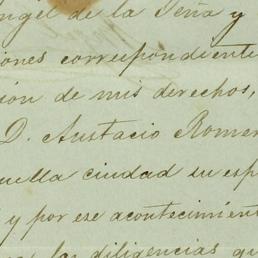 ngel de la Peña y
iones correspondiente
ión de mis derechos,
D. Austacio Romer
uella ciudad su esp
y por ese acontecimient
las diligencias qu